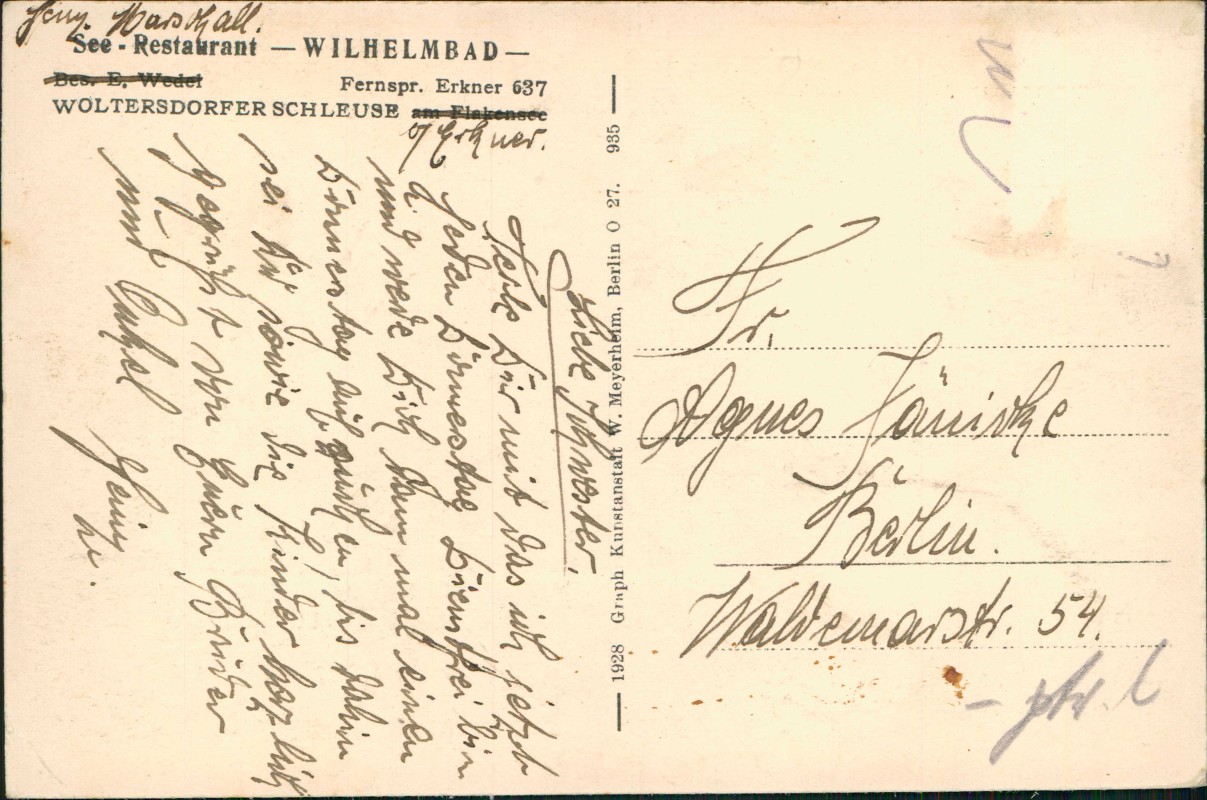 Heinz Marschall.
See - Restaurant — WILHELMBAD —
Bes. E. Wedel Fernspr. Erkner 637
WOLTERSDORFER SCHLEUSE am Flakensee
b/ Erkner.
Liebe Schwester,
Teile Dir mit das ich jetzt
jeden Donnestag Dienstfrei bin
u.
und werde Dich dann mal einen
Donnestag aufsuchen, bis dahin
sei Du sowie die Kinder herzlich
gegrüßt von Euern Bruder
und Onkel
Heinz
1928 Graph Kunstanstalt W. Meyerheim, Berlin O 27. 935
Fr.
Agnes Jänicke
Berlin.
Waldemarstr. 54.